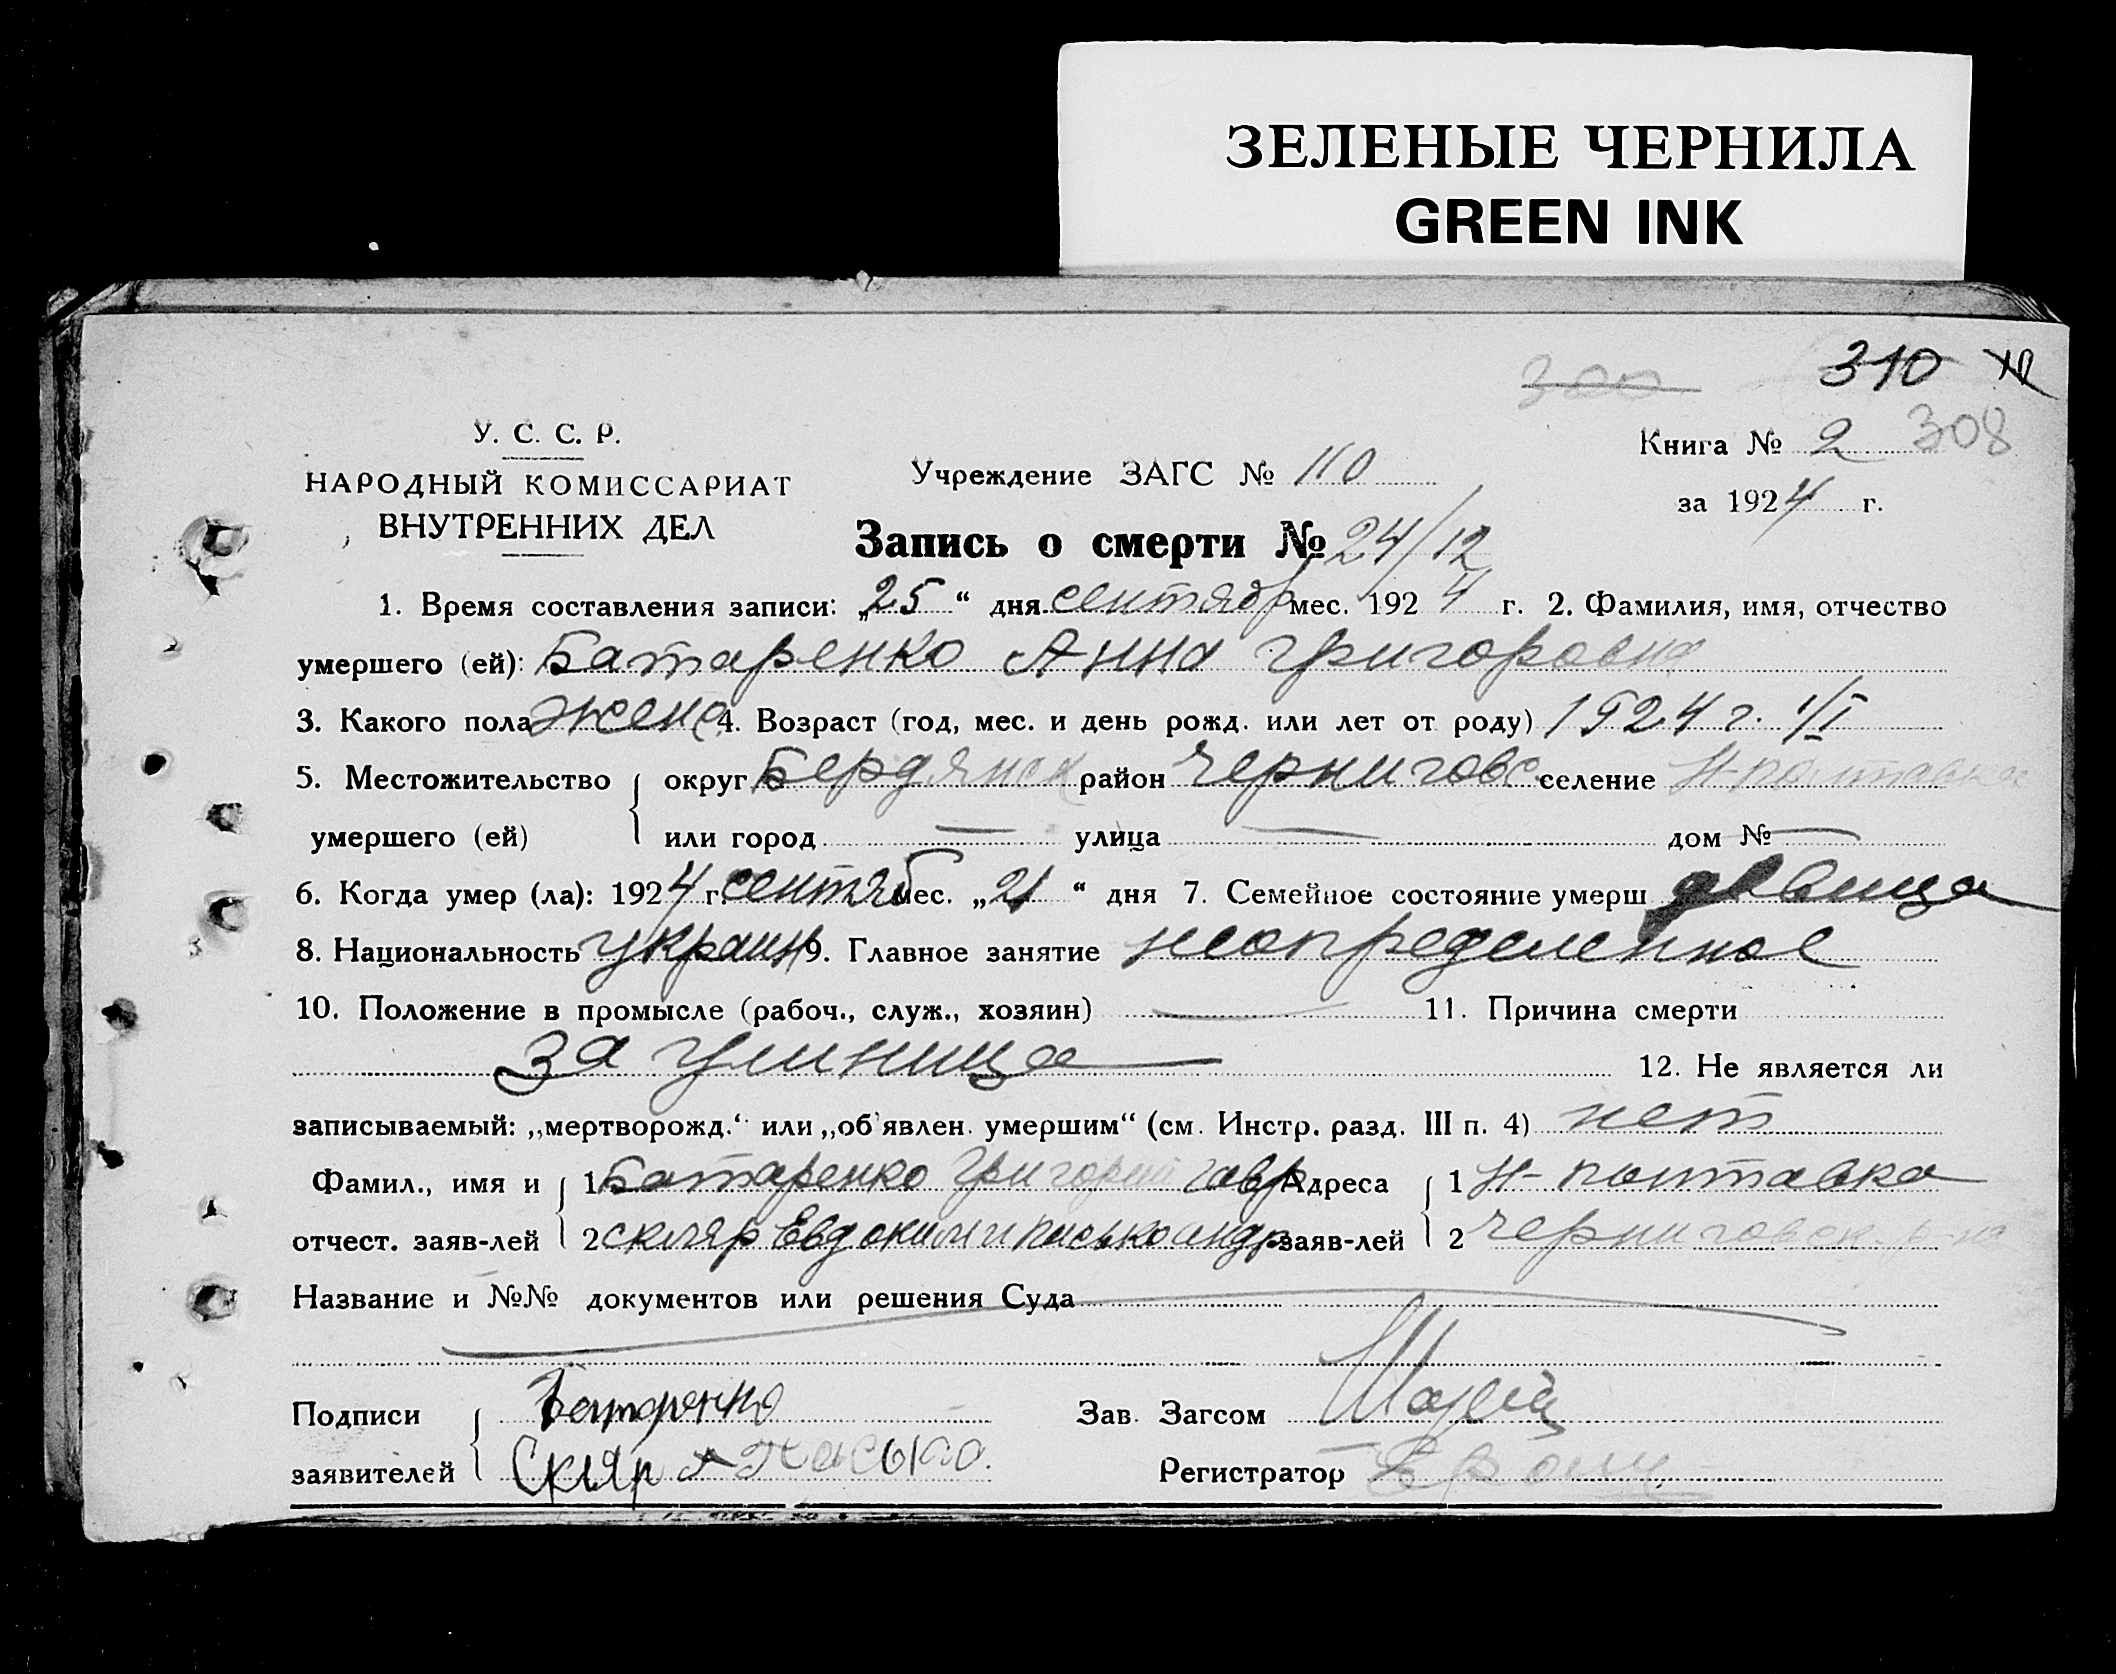 ЗЕЛЕНЫЕ ЧЕРНИЛА
GREEN INK
300 310
У. С. С. Р.
НАРОДНЫЙ КОМИССАРИАТ
ВНУТРЕННИХ ДЕЛ
Учреждение ЗАГС № 110
Книга № 2 308
за 1924 г.
Запись о смерти № 24/12
1. Время составления записи: „25“ дня сентябр мес. 1924 г. 2. Фамилия, имя, отчество
умершего (ей): Батаренко Анна Григоровна
3. Какого пола женс 4. Возраст (год, мес. и день рожд. или лет от роду) 1924 г. 1/I
5. Местожительство округ Бердянск район Черниговс. селение Н-Полтавка
умершего (ей) или город — улица — дом № —
6. Когда умер (ла): 1924 г. сентяб мес. „21“ дня 7. Семейное состояние умерш девица
8. Национальность украин 9. Главное занятие неопределенное
10. Положение в промысле (рабоч., служ., хозяин) — 11. Причина смерти
12. Не является ли
записываемый: „мертворожд.“ или „об'явлен. умершим“ (см. Инстр. разд. III п. 4) нет
Фамил., имя и 1 Батаренко Григорий Гавр Адреса 1 Н-Полтавка
отчест. заяв-лей 2 Скляр Евдоким и Пасько Андр заяв-лей 2 Черниговск. р-на
Название и №№ документов или решения Суда
Подписи Батаренко Зав. Загсом
заявителей Скляр Пасько. Регистратор